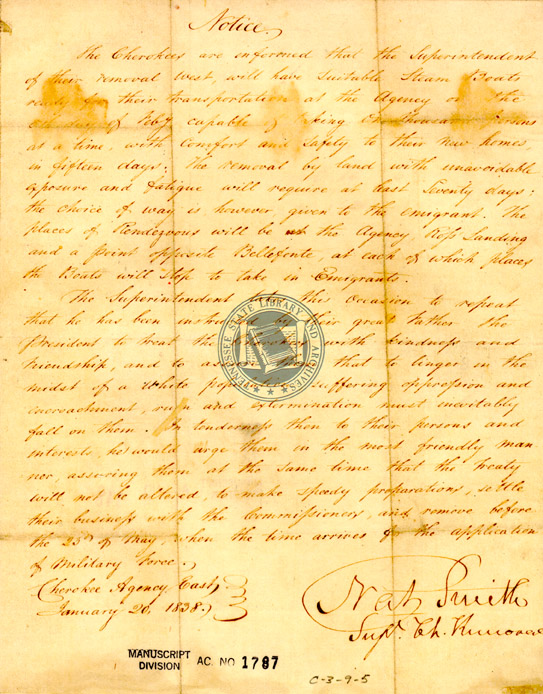 Notice,
The Cherokees are informed that the Superintendent
of their removal West, will have Suitable Steam Boats
ready for their transportation at the Agency on the
day of Feby capable of taking a thousand persons
at a time, with Comfort and Safety to their new homes
in fifteen days: The removal by land with unavoidable
exposure and fatigue will require at least Seventy days:
the choice of way is however, given to the emigrant. The
places of Rendezvous will be at the Agency, Ross Landing
and a point opposite Bellefonte, at each of which places
the Boats will Stop to take in Emigrants.
The Superintendent this occasion to repeat
that he has been instructed by their great Father the
President to treat the Cherokees with kindness and
friendship, and to them that to linger in the
midst of a White population suffering oppression and
encroachment, ruin and extermination must inevitably
fall on them. In tenderness then to their persons and
interests, he would urge them in the most friendly man
ner, assuring them at the Same time that the treaty
will not be altered, to make speedy preparations, settle
their business with the Commissioners, and remove before
the 23d of May, when the time arrives for the application
of Military Force.
Cherokee Agency East,
January 20, 1838.
Nat Smith
Supt. Ch. Removal
TENNESSEE STATE LIBRARY AND ARCHIVES
MANUSCRIPT
DIVISION
AC. NO. 1787
C-3-9-5